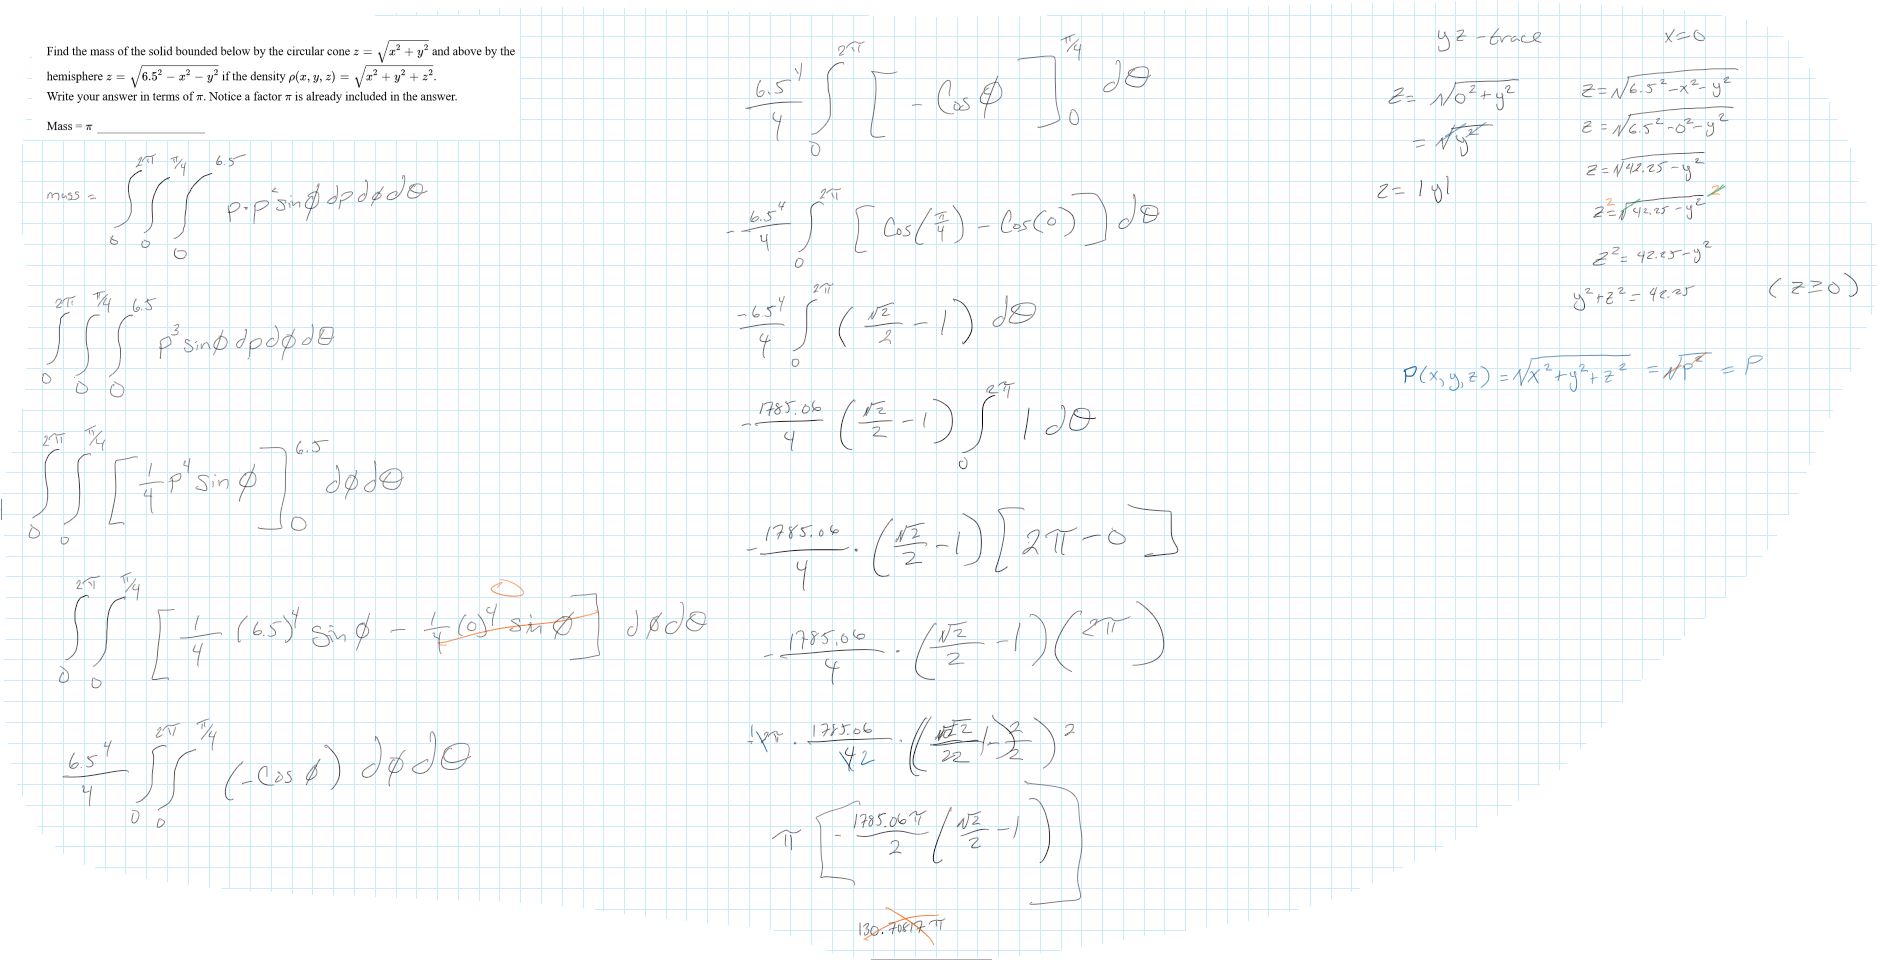 Find the mass of the solid bounded below by the circular cone z = √(x² + y²) and above by the
hemisphere z = √(6.5² − x² − y²) if the density ρ(x, y, z) = √(x² + y² + z²).
Write your answer in terms of π. Notice a factor π is already included in the answer.
Mass = π
mass = ∫₀^2π ∫₀^π/4 ∫₀^6.5 ρ·ρ² sinϕ dρ dϕ dθ
∫₀^2π ∫₀^π/4 ∫₀^6.5 ρ³ sinϕ dρ dϕ dθ
∫₀^2π ∫₀^π/4 [1/4 ρ⁴ sin ϕ]₀^6.5 dϕ dθ
∫₀^2π ∫₀^π/4 [1/4 (6.5)⁴ sin ϕ − 1/4 (0)⁴ sin ϕ] dϕ dθ
0
6.5⁴/4 ∫₀^2π ∫₀^π/4 (−cos ϕ) dϕ dθ
6.5⁴/4 ∫₀^2π [−Cos ϕ]₀^π/4 dθ
−6.5⁴/4 ∫₀^2π [Cos(π/4) − Cos(0)] dθ
−6.5⁴/4 ∫₀^2π (√2/2 − 1) dθ
−1785.06/4 (√2/2 − 1) ∫₀^2π 1 dθ
−1785.06/4 · (√2/2 − 1) [2π − 0]
−1785.06/4 · (√2/2 − 1)(2π)
π [−1785.06π/2 (√2/2 − 1)]
130.70817 π
yz − trace x=0
z = √(0² + y²)
= √y²
z = |y|
z = √(6.5² − x² − y²)
z = √(6.5² − 0² − y²)
z = √(42.25 − y²)
z² = √(42.25 − y²)²
z² = 42.25 − y²
y² + z² = 42.25 (z ≥ 0)
P(x, y, z) = √(x² + y² + z²) = √ρ² = ρ